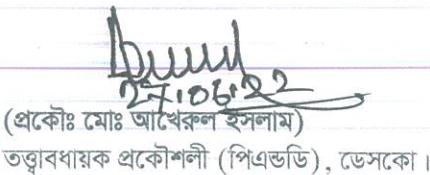 27.06.22
(প্রকৌঃ মোঃ আখেরুল ইসলাম)
তত্ত্বাবধায়ক প্রকৌশলী (পিএন্ডডি), ডেসকো।